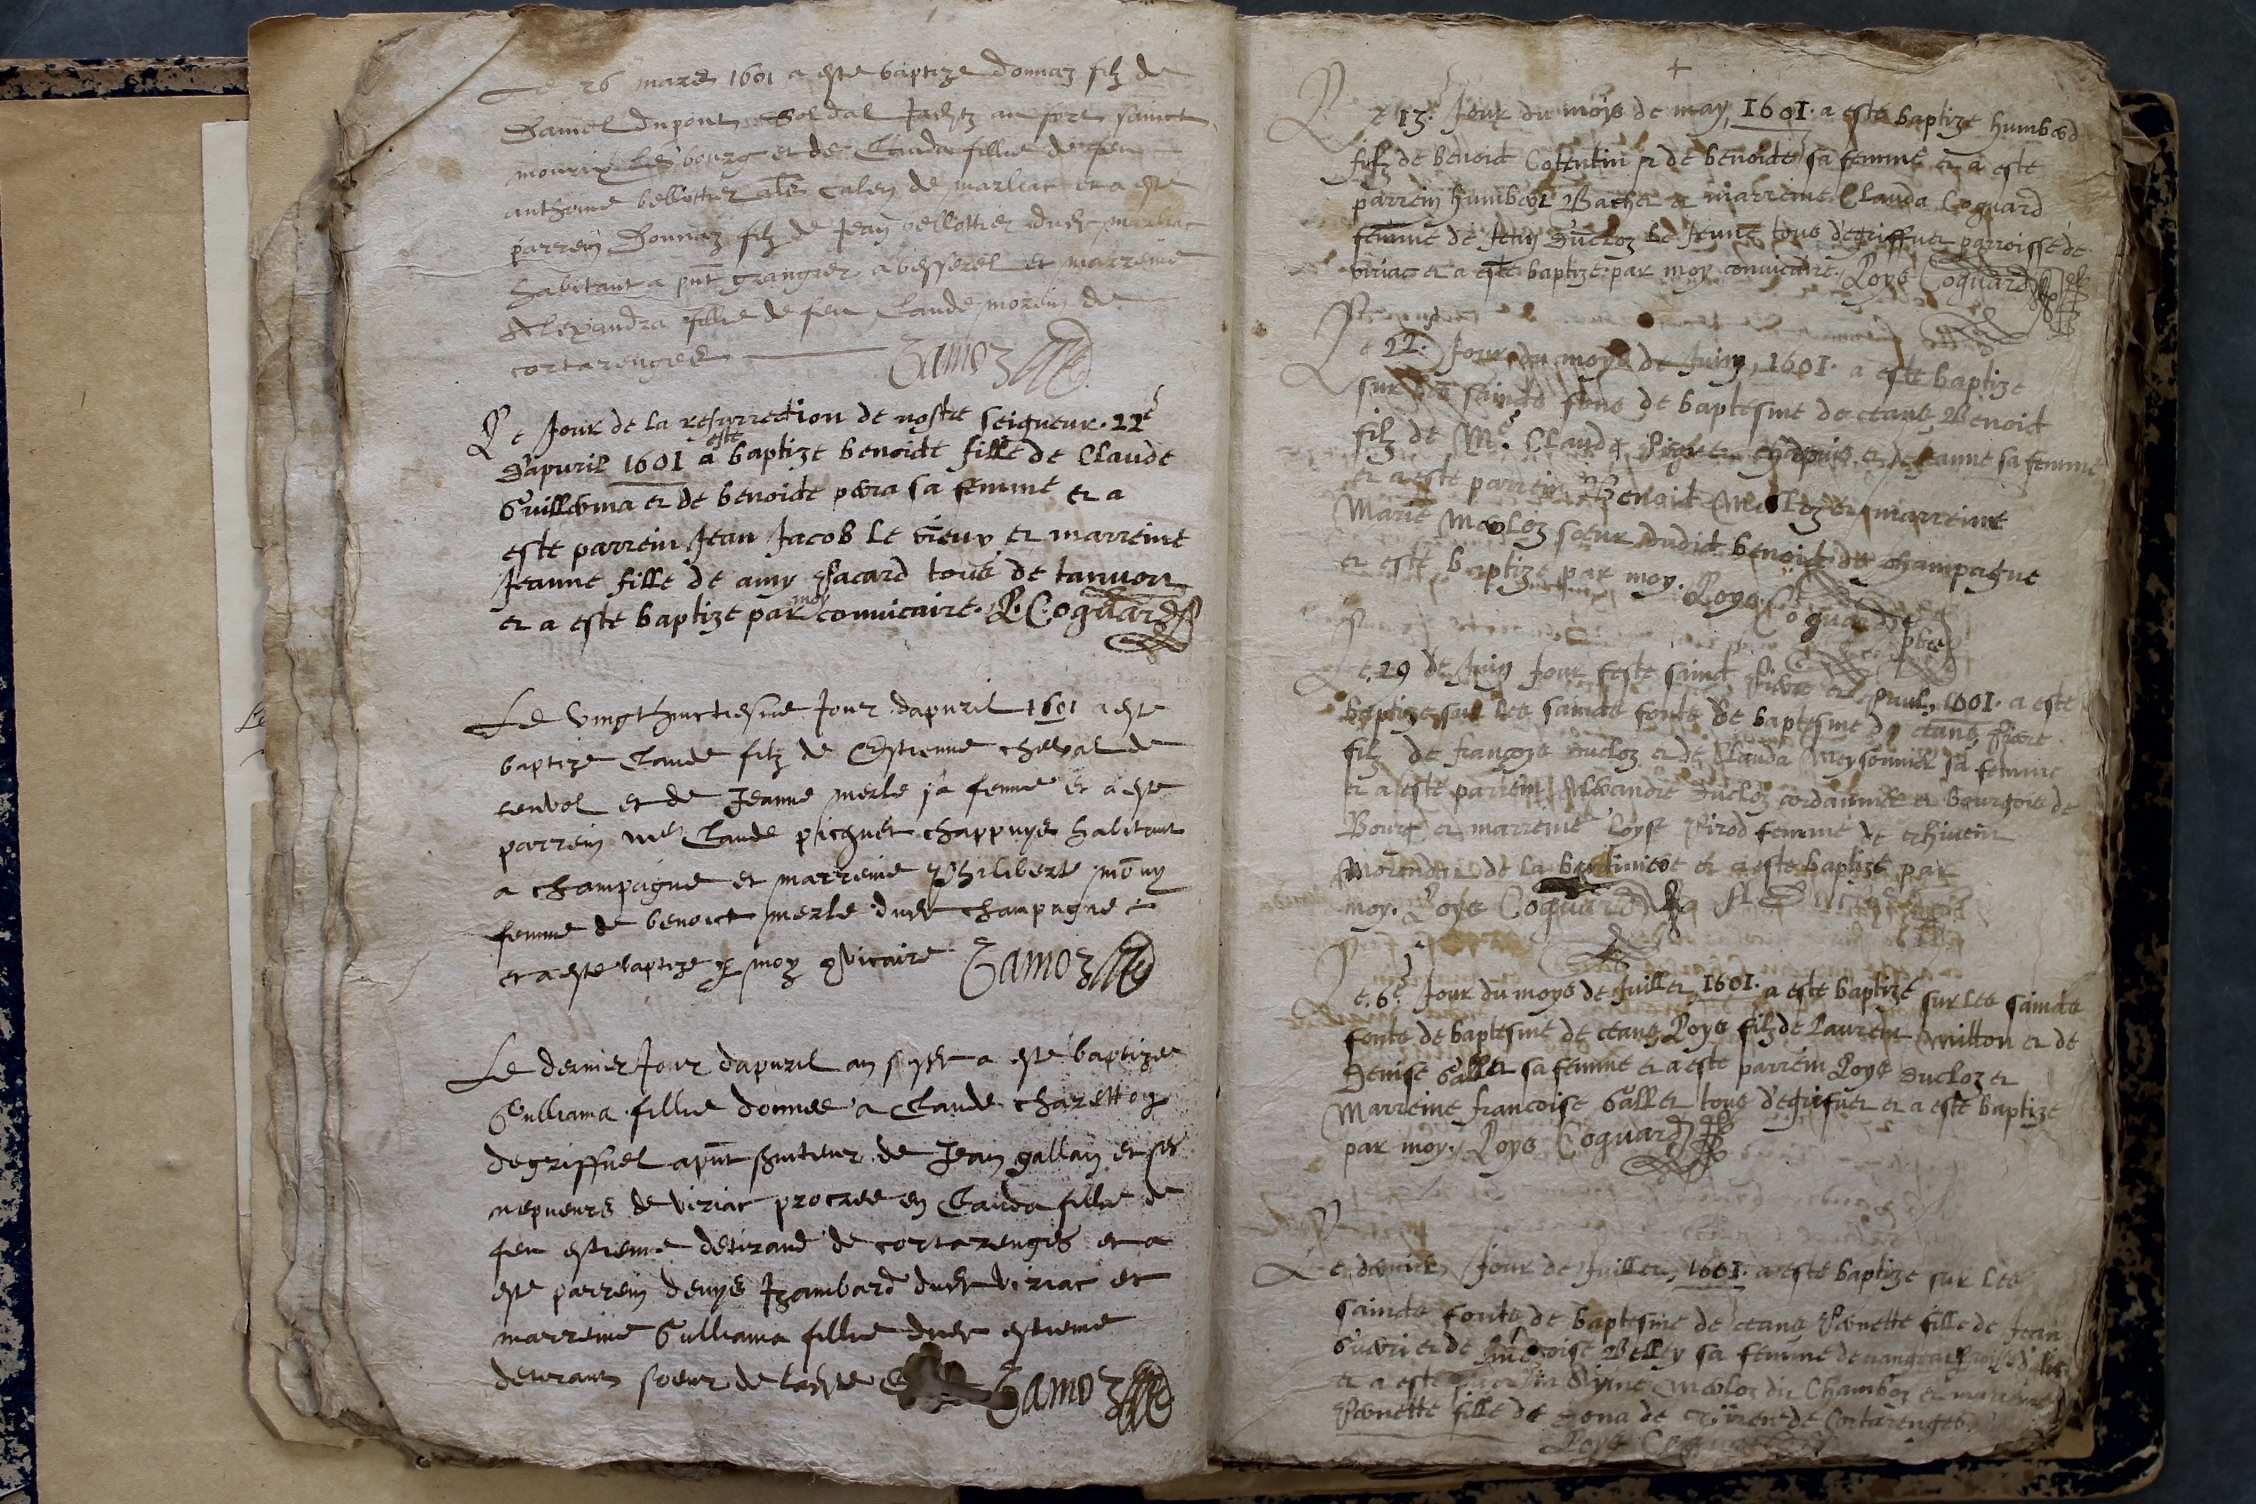 Le 26 mars 1601 a este baptize donnaz filz de
Daniel dupont Soldat au fort sainct
mouriz les bourg et de Clauda fillie de feu
anthoine bellottier als de marliat et a este
parrein Donnaz filz de Jean bellottier dudt marliat
habitant a pnt grangier a besserel et marreine
Alexandra fillie de feu Claude morin de
cortarenges Zamoz
Le Jour de la resurrection de nostre seigneur. 22e
d'apuril 1601 a este baptize benoicte fille de Claude
Guillerma et de benoicte pera sa femme et a
este parrein Jean Jacob le vieux et marreine
Jeanne fille de amy Pacard tous de tanuon
et a este baptize par moy convicaire. L. Coguard
Le vingthuictiesme Jour dapuril 1601 a este
baptize Claude filz de Estienne cheval de
cenvol et de Jeanne merle sa femme et a este
parrein Me Claude picquet chappuys habitant
a champagne et marreine Philiberte mony
femme de benoict merle dudt champagne
et a este baptize p moy vicaire Zamoz
Le dernier Jour dapuril an a este baptizee
Gulliama fillie donnee a Claude charetton
degriffuel apnt serviteur de Jean gallan et ses
nepueurs de viriat procree en Clauda fillie de
feu estienne detirand de cortarenges et a
este parrein denys Izambard dudt viriat et
marreine Gulliama fillie dudt estienne
detirand soeur de ladte Zamoz
Le 13e Jour du moys de may, 1601. a este baptize humberd
filz de benoict Cotentin et de benoicte sa femme et a este
parrein humbert Bachet et marreine Clauda Coguard
femme de Jean Ducloz le Jeune tous de griffuet parroisse de
viriat et a este baptize par moy convicaire. Loys Coguard
Le 22e Jour du moys de Juin, 1601. a este baptize
sur les saincts fons de baptesme de ceans Benoict
filz de Me. Claude et de Jeanne sa femme
et a este parrein Benoict Merloz et marreine
Marie Merloz soeur dudict benoict de champagne
et este baptize par moy. Loys Coguard pbre
Le 29 de Juin Jour feste sainct Pierre et Paul, 1601. a este
baptize sur les saincts fonts de baptesme de ceans, Pierre
filz de françoys ducloz et de Clauda Meysonnier sa femme
et a este parrein Alexandre Ducloz cordannier et bourgois de
Bourg et marreine Loyse Pirod femme de
de la et a este baptize par
moy. Loys Coguard
Le 6e Jour du moys de Juillet, 1601. a este baptize sur les saincts
fonts de baptesme de ceans, Loys filz de Laurent Mitton et de
Denise Gallet sa femme et a este parrein Loys Ducloz et
Marreine francoise Gallet tous de grifuet et a este baptize
par moy. Loys Coguard
Le dernier Jour de Juillet, 1601. a este baptize sur les
saincts fonts de baptesme de ceans Pernette fille de Jean
et de Belley sa femme
et a este parrein Merloz du Chamboz et marreine
Pernette fille de Dona de de Cortarenges
Loys Coguard